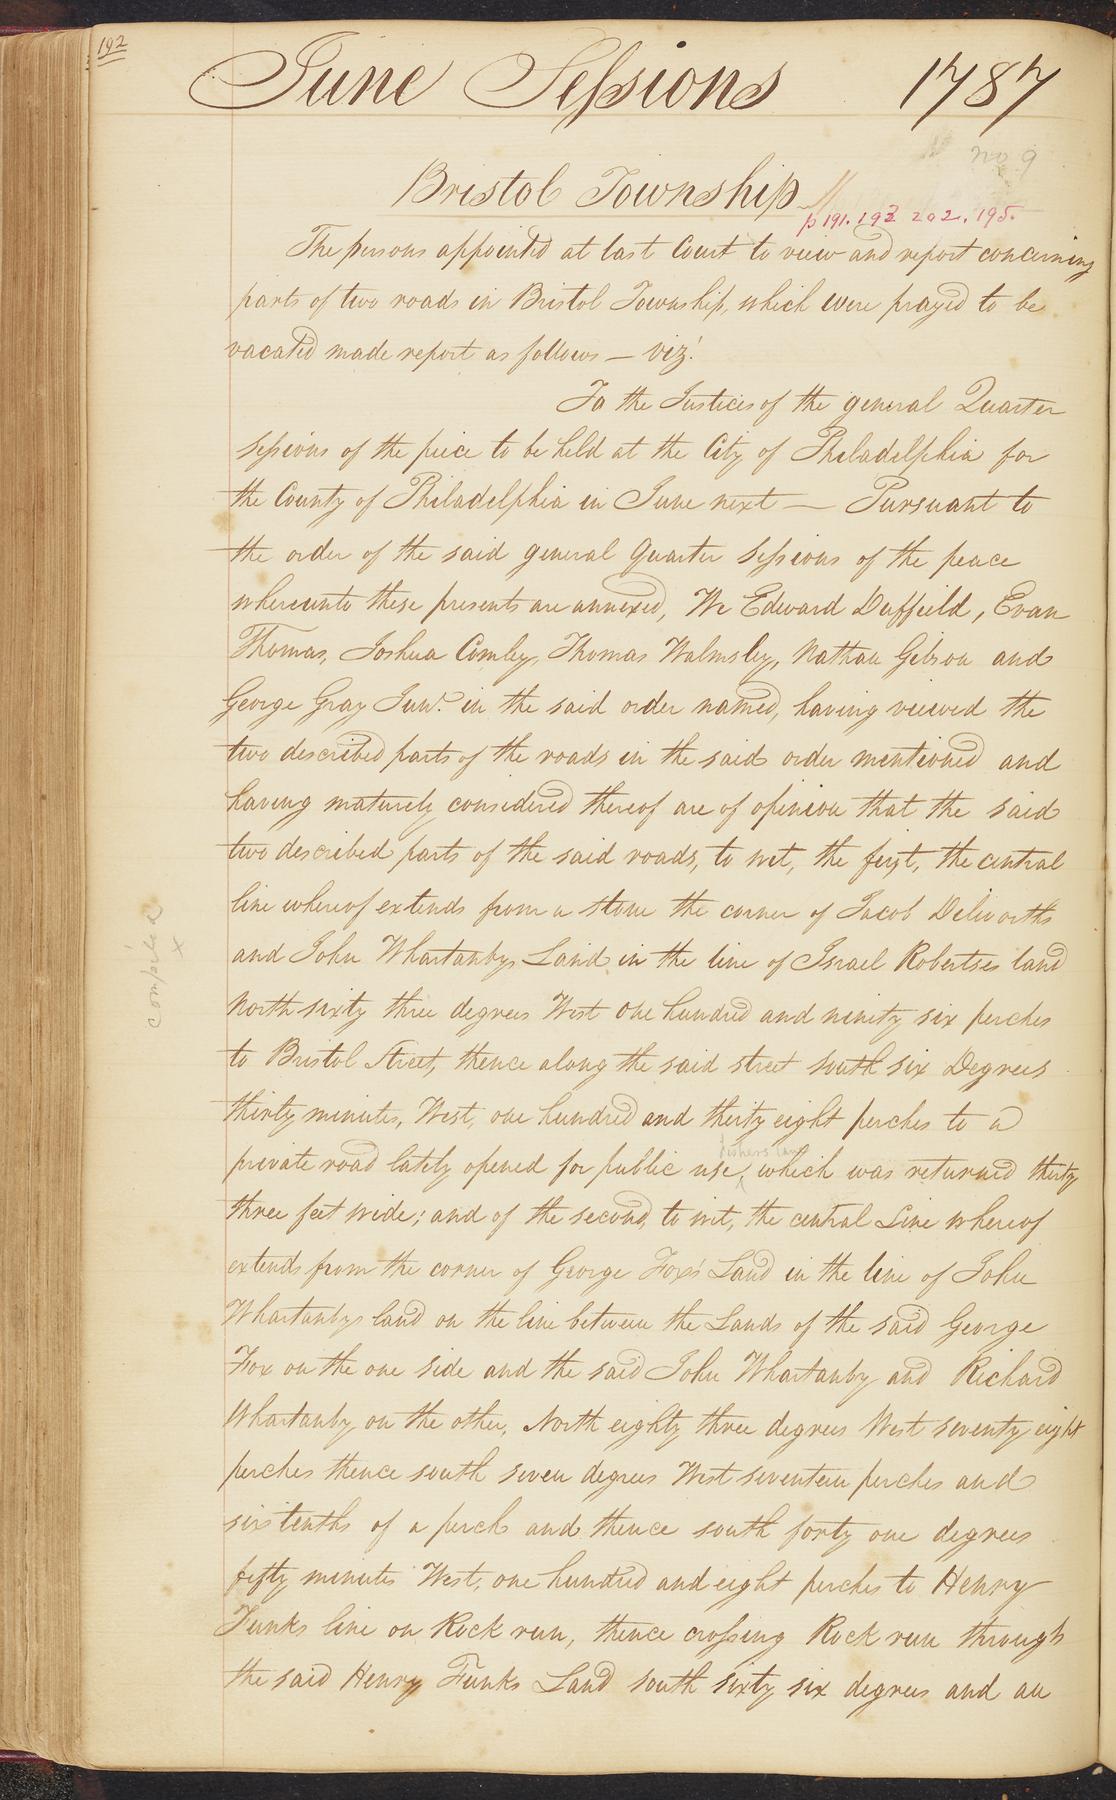 192
June Sessions 1787
no 9
Bristol Township
p 191. 193 202. 195.
The persons appointed at last Court to view and report concerning
parts of two roads in Bristol Township, which were prayed to be
vacated made report as follows — viz!
To the Justices of the general Quarter
sessions of the peice to be held at the City of Philadelphia for
the County of Philadelphia in June next — Pursuant to
the order of the said general Quarter sessions of the peace
whereunto these presents are annexed, We Edward Duffield, Evan
Thomas, Joshua Comley, Thomas Walmsley, Nathan Gibson and
George Gray Junr. in the said order named, having viewed the
two described parts of the roads in the said order mentioned and
having maturely considered thereof are of opinion that the said
two described parts of the said roads, to wit, the first, the central
line whereof extends from a stone the corner of Jacob Dilworths
and John Whartanbys Land in the line of Israel Robertses land
North sixty three degrees West one hundred and ninety six perches
to Bristol Street, thence along the said street south six Degrees
thirty minutes, West, one hundred and thirty eight perches to a
fishers lane
private road lately opened for public use, which was returned thirty
three feet wide; and of the second, to wit, the central Line whereof
extends from the corner of George Fox's Land in the line of John
Whartanbys land on the line between the Lands of the said George
Fox on the one side and the said John Whartanby and Richard
Whartanby on the other, North eighty three degrees West seventy eight
perches thence south seven degrees West seventeen perches and
six tenths of a perch and thence south forty one degrees
fifty minutes West, one hundred and eight perches to Henry
Funks line on Rock run, thence crossing Rock run through
the said Henry Funks Land south sixty six degrees and an
compiled
x